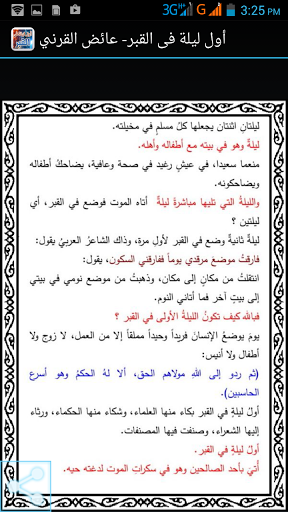 3G G 3:25 PM
أول ليلة فى القبر- عائض القرني
ليلتانِ اثنتان يجعلها كلُ مسلمٍ في مخيلته.
ليلةٌ وهو في بيته مع أطفاله وأهله.
منعما سعيدا، في عيشٍ رغيد في صحة وعافية، يضاحكُ أطفاله
ويضاحكونه.
والليلةُ التي تليها مباشرةً ليلةً أتاه الموت فوضع في القبر، أي
ليلتين ؟
ليلةٌ ثانيةٌ وضع في القبر لأولِ مرة، وذاك الشاعرُ العربيُ يقول:
فارقتُ موضعَ مرقدي يوماً ففارقني السكون، يقول:
انتقلتُ من مكانٍ إلى مكان، وذهبتُ من موضع نومي في بيتي
إلى بيتٍ آخر فما أتاني النوم.
فبالله كيف تكونُ الليلةُ الأولى في القبر ؟
يومَ يوضعُ الإنسانَ فريداً وحيداً مملقاً إلا من العمل، لا زوج ولا
أطفال ولا أنيس:
(ثم ردو إلى اللهِ مولاهم الحق، ألا لهُ الحكمُ وهو أسرع
الحاسبين).
أولُ ليلةٍ في القبرِ بكاء منها العلماء، وشكاء منها الحكماء، ورثاء
إليها الشعراء، وصنفت فيها المصنفات.
أولُ ليلةٍ في القبر.
أُتيَ بأحد الصالحين وهو في سكراتِ الموت لدغته حيه.